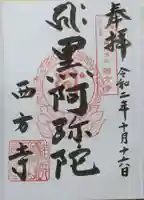 奉拝
令和二年十月十六日
黒阿弥陀
西方寺